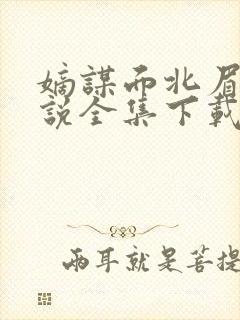 嫡謀而北眉
說全集下載
兩耳就是菩提